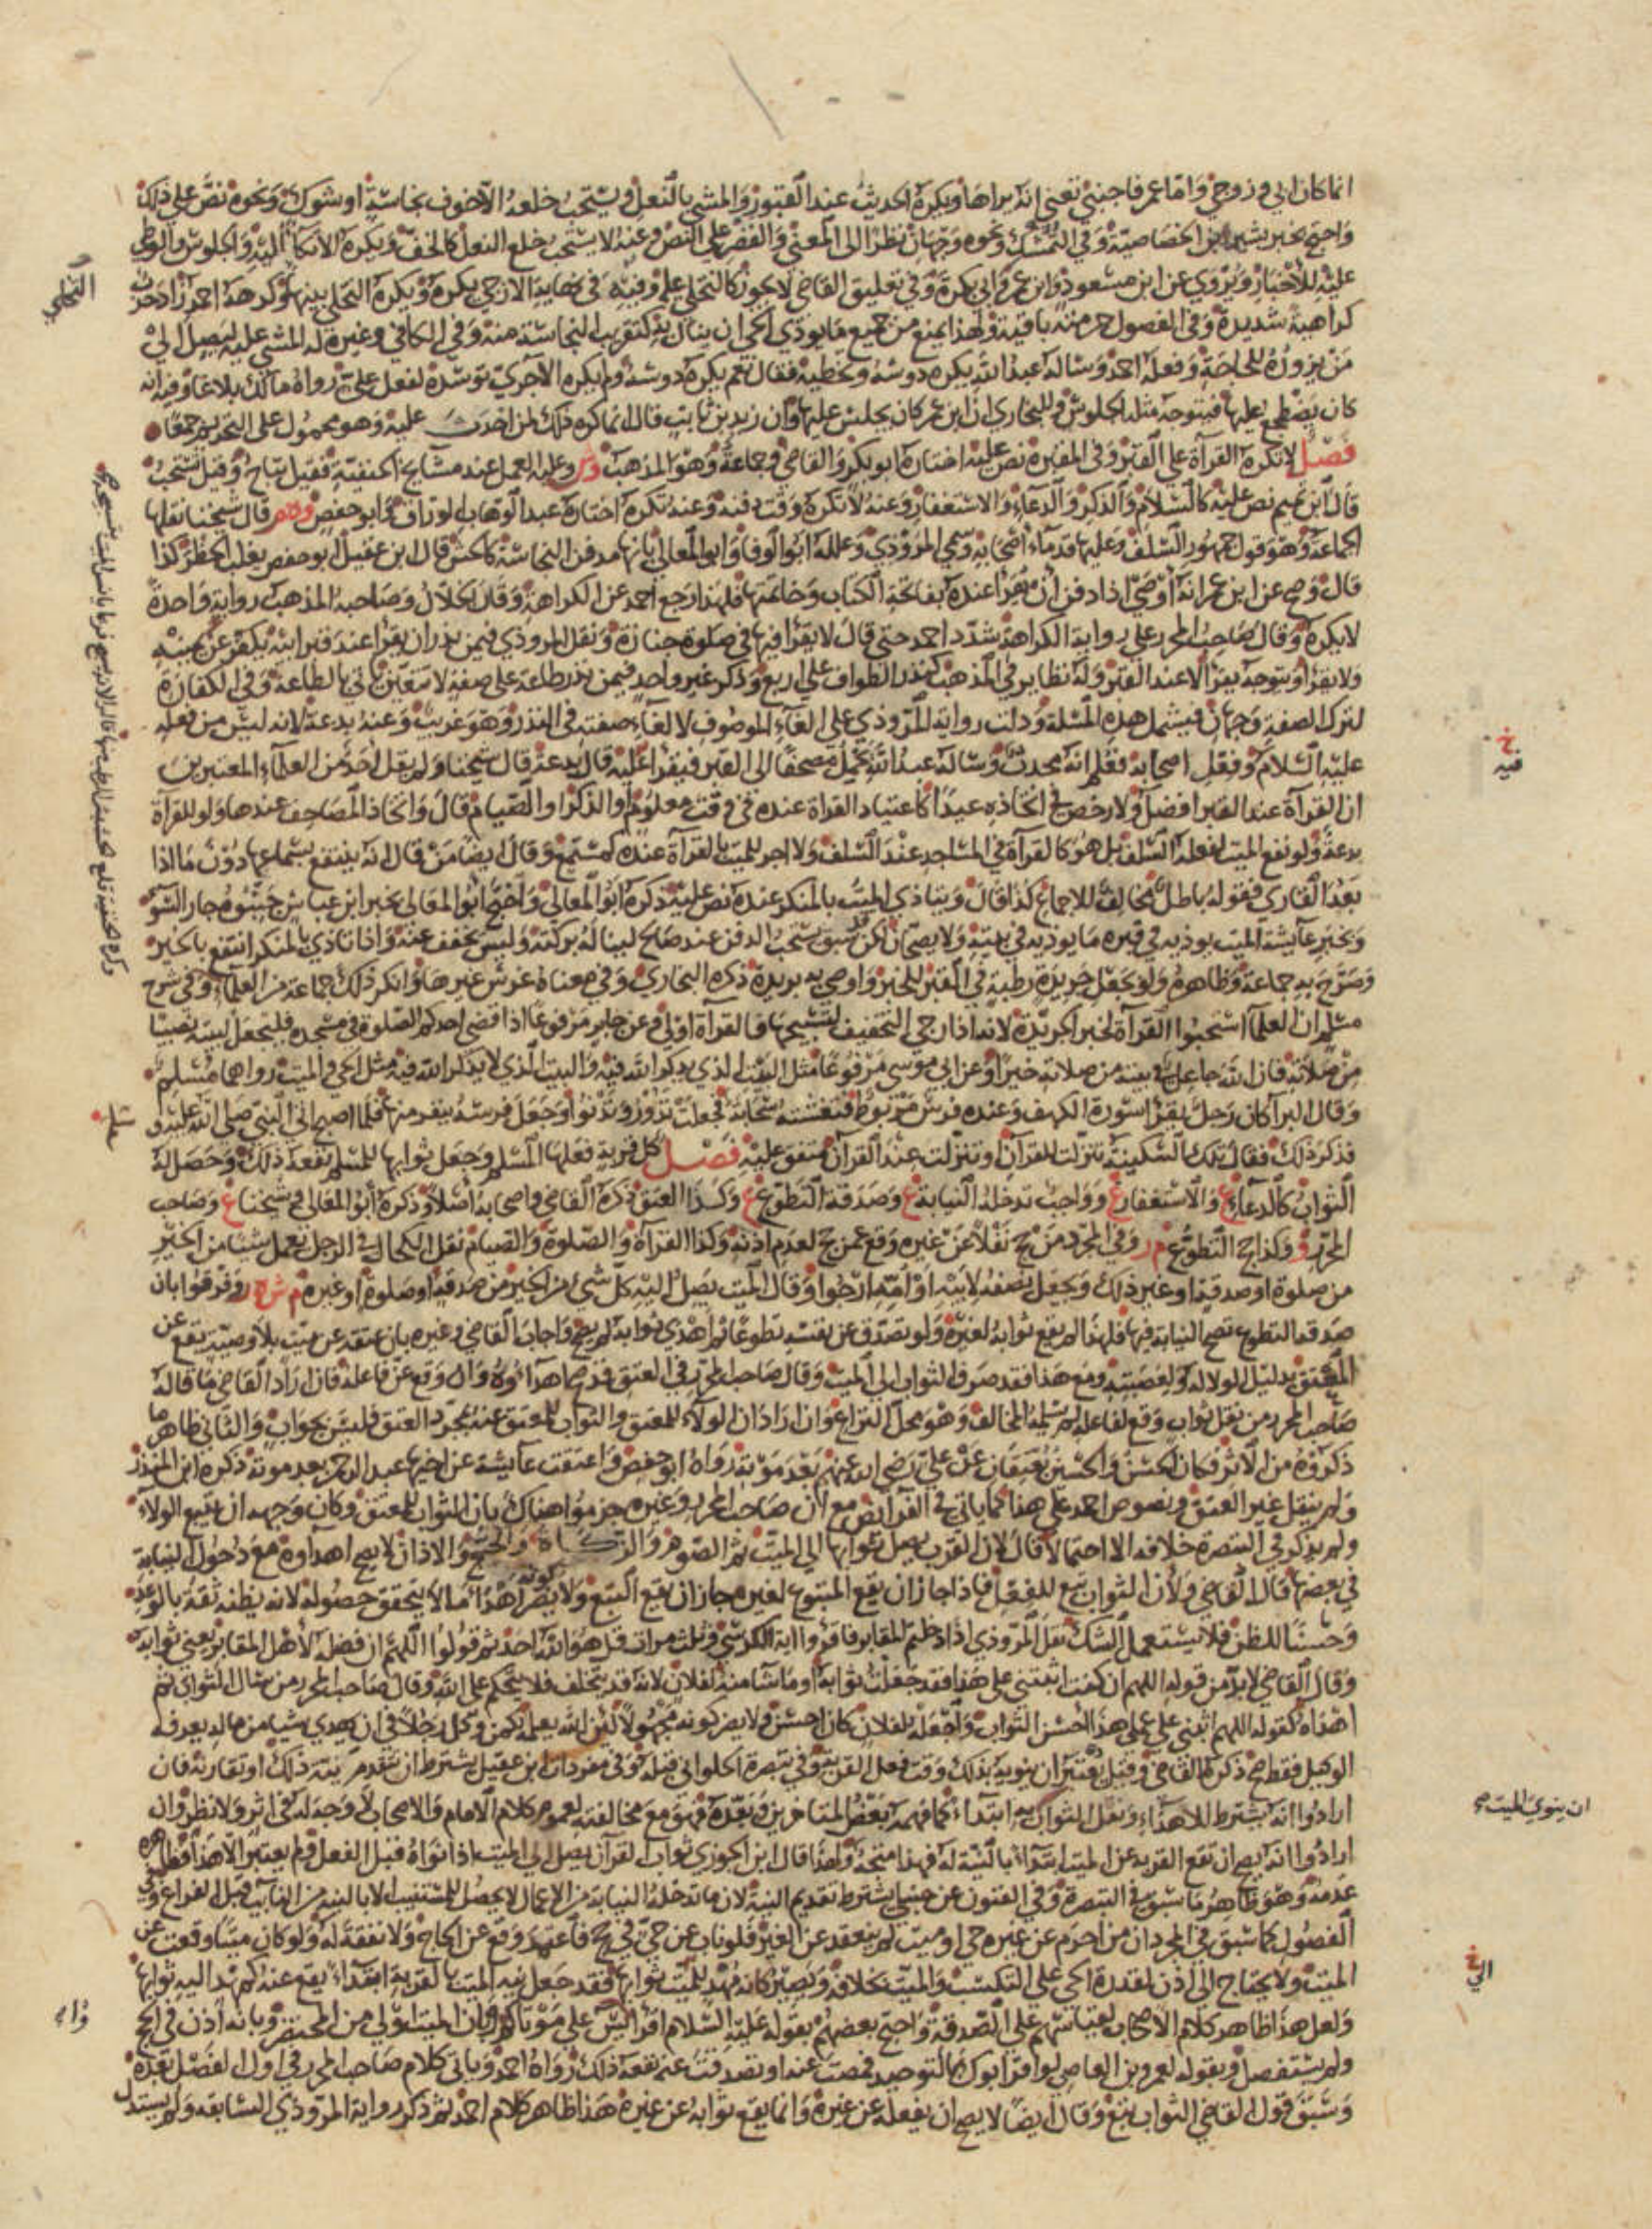 انما كان ابي وزوجي واما عمر فاجنبي تعني انه يراها ويكره الحديث عند القبور والمشي بالنعل ويستحب خلعه الا خوف نجاسة او شوك ونحوه نص على ذلك
واحتج بخبر بشير ابن الخصاصية وفي التمشك ونحوه وجهان نظرا الى المعنى والقصر على النص وعنه لا يستحب خلع النعل كالخف ويكره الاتكآ اليه والجلوس والوطي
عليه للاخبار ويروي عن ابن مسعود وابن عمر وابي بكرة وفي تعليق القاضي لا يجوز كالتخلي عليه وفيه في نهاية الازجي يكره ويكره التخلي بينها وكره هذا احمد زاد حرب
كراهية شديدة وفي الفصول حرمته باقية ولهذا يمنع من جميع ما يوذي الحي ان ينال به كتقريب النجاسة منه وفي الكافي وغيره له المشي عليه ليصل الى
من يزوره للحاجة وفعله احمد وساله عبد الله يكره دوسه وتخطيه فقال نعم يكره دوسه ولم يكره الآجري توسده لفعل علي رواه مالك بلاغا وفيه انه
كان يضطجع عليها فيتوجه مثله الجلوس وللبخاري ان ابن عمر كان يجلس عليها وان زيد بن ثابت قال انما كره ذلك لمن احدث عليه وهو محمول على التحديد جمعا
فصل لا تكره القرآة على القبر وفي المقبرة نص عليه اختاره ابو بكر والقاضي وجماعة وهو المذهب وش وعليه العمل عند مشايخ الحنفية فقيل تباح وقيل تستحب
قال ابن تميم نص عليه كالسلام والذكر والدعاء والاستغفار وعنه لا تكره وقت دفنه وعنه تكره اختاره عبد الوهاب الوراق وابو حفص وهم قال شيخنا نقلها
الجماعة وهو قول جمهور السلف وعليها قدماء اصحابه وسمي المروذي وعلله ابو الوفا وابو المعالي بانها مدفن النجاسة كالحش قال ابن عقيل ابو حفص يغلب الحظر كذا
قال وصح عن ابن عمر انه اوصى اذا دفن ان يقرا عنده بفاتحة الكتاب وخاتمتها فلهذا رجع احمد عن الكراهة وقال الخلال وصاحبه المذهب رواية واحدة
لا يكره وقال صاحب المحرر على رواية الكراهة شدد احمد حتى قال لا يقرا فيها في صلوة جنازة ونقل المروذي فيمن نذر ان يقرا عند قبر ابيه يكفر عن يمينه
ولا يقرا ويتوجه يقرا لا عند القبر وله نظاير في المذهب كنذر الطواف على اربع وذكر غير واحد فيمن نذر طاعة على صفة لا تتعين ياتي بالطاعة وفي الكفارة
لترك الصفة وجهان فيشمل هذه المسئلة ودلت رواية المروذي على الغآء الموصوف لا لغآء صفته في النذر وهو غريب وعنه بدعة لانه ليس من فعله
عليه السلام وفعل اصحابه فعلم انه محدث وساله عبد الله يحمل مصحفا الى القبر فيقرا عليه قال بدعة قال شيخنا ولم يقل احد من العلمآء المعتبرين
ان القرآة عند القبر افضل ولا رخص في اتخاذه عيدا كاعتياد القراة عنده في وقت معلوم او الذكر او الصيام قال واتخاذ المصاحف عندها ولو للقرآة
بدعة ولو نفع الميت لفعله السلف بل هو كالقرآة في المساجد عند السلف ولا اجر للميت بالقرآة عنده كمستمع وقال ايضا من قال انه ينتفع بسماعها دون ما اذا
بعد القاري فقوله باطل مخالف للاجماع كذا قال ويتاذى الميت بالمنكر عنده نص عليه ذكره ابو المعالي واحتج ابو المعالي بخبر ابن عباس جنبوه جار السوء
وبخبر عآيشة الميت يوذيه في قبره ما يوذيه في بيته ولا يصحان لكن سبق يستحب الدفن عند صالح لينا له بركته وليس يخفف عنه واذا تاذى بالمنكر انتفع بالخير
وصرح به جماعة وظاهره ولو بجعل جريدة رطبة في القبر للخبر واوصى به بريدة ذكره البخاري وفي معناه غرس غيرها وانكر ذلك جماعة من العلمآء وفي شرح
مسلم ان العلمآ استحبوا القرآة لخبر الجريدة لانه اذا رجى التخفيف لتسبيحها فالقرآة اولى وعن جابر مرفوعا اذا قضى احدكم الصلوة في مسجده فليجعل لبيته نصيبا
من صلاته فان الله جاعل في بيته من صلاته خيرا وعن ابي موسى مرفوعا مثل البيت الذي يذكر الله فيه والبيت الذي لا يذكر الله فيه مثل الحي والميت رواهما مسلم
وقال البرآ كان رجل يقرا سورة الكهف وعنده فرس مربوط فتغشته سحابة فجعلت تدور وتدنوا وجعل فرسه ينفر منها فلما اصبح اتى النبي صلى الله عليه و
فذكر ذلك فقال تلك السكينة تنزلت للقرآن وتنزلت عند القرآن متفق عليه فصل كل قربة فعلها المسلم وجعل ثوابها للمسلم نفعه ذلك وحصل له
الثواب كالدعآء ع والاستغفار ع وواجب تدخله النيابة ع وصدقة التطوع ع وكذا العتق ذكره القاضي واصحابه اصلا وذكره ابو المعالي وشيخنا ع وصاحب
المحرر و وكذا حج التطوع م ر وفي المجرد من حج نفلا عن غيره وقع عمن حج لعدم اذنه وكذا القرآة والصلوة والصيام نقل الكحال في الرجل يعمل شيئا من الخير
من صلوة او صدقة او غير ذلك ويجعل نصفه لابيه او امه ارجوا وقال الميت يصل اليه كل شيء من الخير من صدقة او صلوة او غيره م ش ر وفرقوا بان
صدقة التطوع تصح النيابة فيها فلهذا لم يقع ثوابه لغيره ولو تصدق عن نفسه تطوعا ثم اهدى ثوابه لم يصح واجاب القاضي وغيره بان عتقه عن ميت بلا وصية يقع عن
المعتق بدليل الولا له ولعصبته ومع هذا فقد صرف الثواب الى الميت وقال صاحب المحرر في العتق قد صح اهدآوه وان وقع عن فاعله فان اراد القاضي ما قاله
صاحب المحرر من نقل ثواب وقع لفاعله لم يسلمه المخالف وهو محل النزاع وان اراد ان الولآء للمعتق والثواب للمعتق عنه بمجرد العتق فليس بجواب والثاني ظاهر ما
ذكروه من الاثر فكان الحسن والحسين يعتقان عن علي رضي الله عنهم بعد موته رواه ابو حفص واعتقت عآيشة عن اخيها عبد الرحمن بعد موته ذكره ابن المنذر
ولم ينقل غير العتق ونصوص احمد على هذا كما ياتي في الفرآئض مع ان صاحب المحرر وغيره جزموا هناك بان الثواب للمعتق وكان وجهه ان يتبع الولاء
ولم يذكر في التبصرة خلافه الا احتمالا قال لان القرب يصل ثوابها الى الميت ثم الصوم والزكاة والحج والاذان لا يصح اهداوه مع دخول النيابة
في بعضها قال القاضي ولان الثواب تبع للفعل فاذا جاز ان يقع المتبوع لغيره جاز ان يقع التبع ولا يضر كونه اهدا ما لا يتحقق حصوله لانه يظنه ثقة بالوعد
وحسنا للظن فلا يستعمل الشك نقل المروذي اذا دخلتم المقابر فاقروا اية الكرسي وثلث مرات قل هو الله احد ثم قولوا اللهم ان فضله لاهل المقابر يعني ثوابه
وقال القاضي لا بد من قوله اللهم ان كنت اثبتني على هذا فقد جعلت ثوابه او ما شآ منه لفلان لانه قد يتخلف فلا يتحكم على الله وقال صاحب المحرر من سال الثواب ثم
اهداه كقوله اللهم اثبني على عملي هذا احسن الثواب واجعله لفلان كان احسن ولا يضر كونه مجهولا لان الله يعلمه كمن وكل رجلا في ان يهدي شيئا من ماله يعرفه
الوكيل فقط صح ذكره القاضي وقيل يعتبر ان ينويه بذلك وقت فعل القربة وفي تبصرة الحلواني قبله وفي مفردات ابن عقيل يشترط ان تتقدم نية ذلك او تقارنه فان
ارادوا انه يشترط للاهداء ونقل الثواب نيه ابتدآء كما فهمه بعض المتاخرين وبعده فهو مع مخالفته لعموم كلام الامام والاصحاب لا وجه له في اثر ولا نظر وان
ارادوا انه يصح ان تقع القربة عن الميت ابتدآء بالنية له فهذا متجه ولهذا قال ابن الجوزي ثواب القرآن يصل الى الميت اذا نواه قبل الفعل ولم يعتبر الاهدآ فظاهره
عدمه وهو ظاهر ما سبق في التبصرة وفي الفنون عن حنبلي يشترط تقديم النية لان ما تدخله النيابة من الاعمال لا يحصل للمستنيب الا بالنية من النآيب قبل الفراغ وفي
الفصول كما سبق في المجرد ان من احرم عن غيره حي او ميت لم ينعقد عن الغير فلو ناب عن حي في حج فاعتمر وقع عن الحاج ولا نفقة له ولو كان ميتا وقعت عن
الميت ولا يحتاج الى اذن لقدرة الحي على التكسب والميت بخلافه ويصير كانه مهد للميت ثوابها فقد جعل نيه الميت بالقربة ابتدآء يقع عنه كمهد اليه ثوابها
ولعل هذا ظاهر كلام الاصحاب لقياسهم على الصدقة واحتج بعضهم بقوله عليه السلام اقرا يس على موتاكم وان الميت اولى من المحتضر وبانه اذن في الحج
ولم يستفصل وبقوله لعمرو بن العاص لو اقر ابوك بالتوحيد فصمت عنه او تصدقت عنه نفعه ذلك رواه احمد وياتي كلام صاحب المحرر في اول الفصل بعده
وسبق قول القاضي الثواب تبع وقال ايضا لا يصح ان يفعله عن غيره وانما يقع ثوابه عن غيره هذا ظاهر كلام احمد ثم ذكر رواية المروذي السابقة ولم يستدل
التخلي
خ
فيه
ان ينوي الميت صح
خ
الي